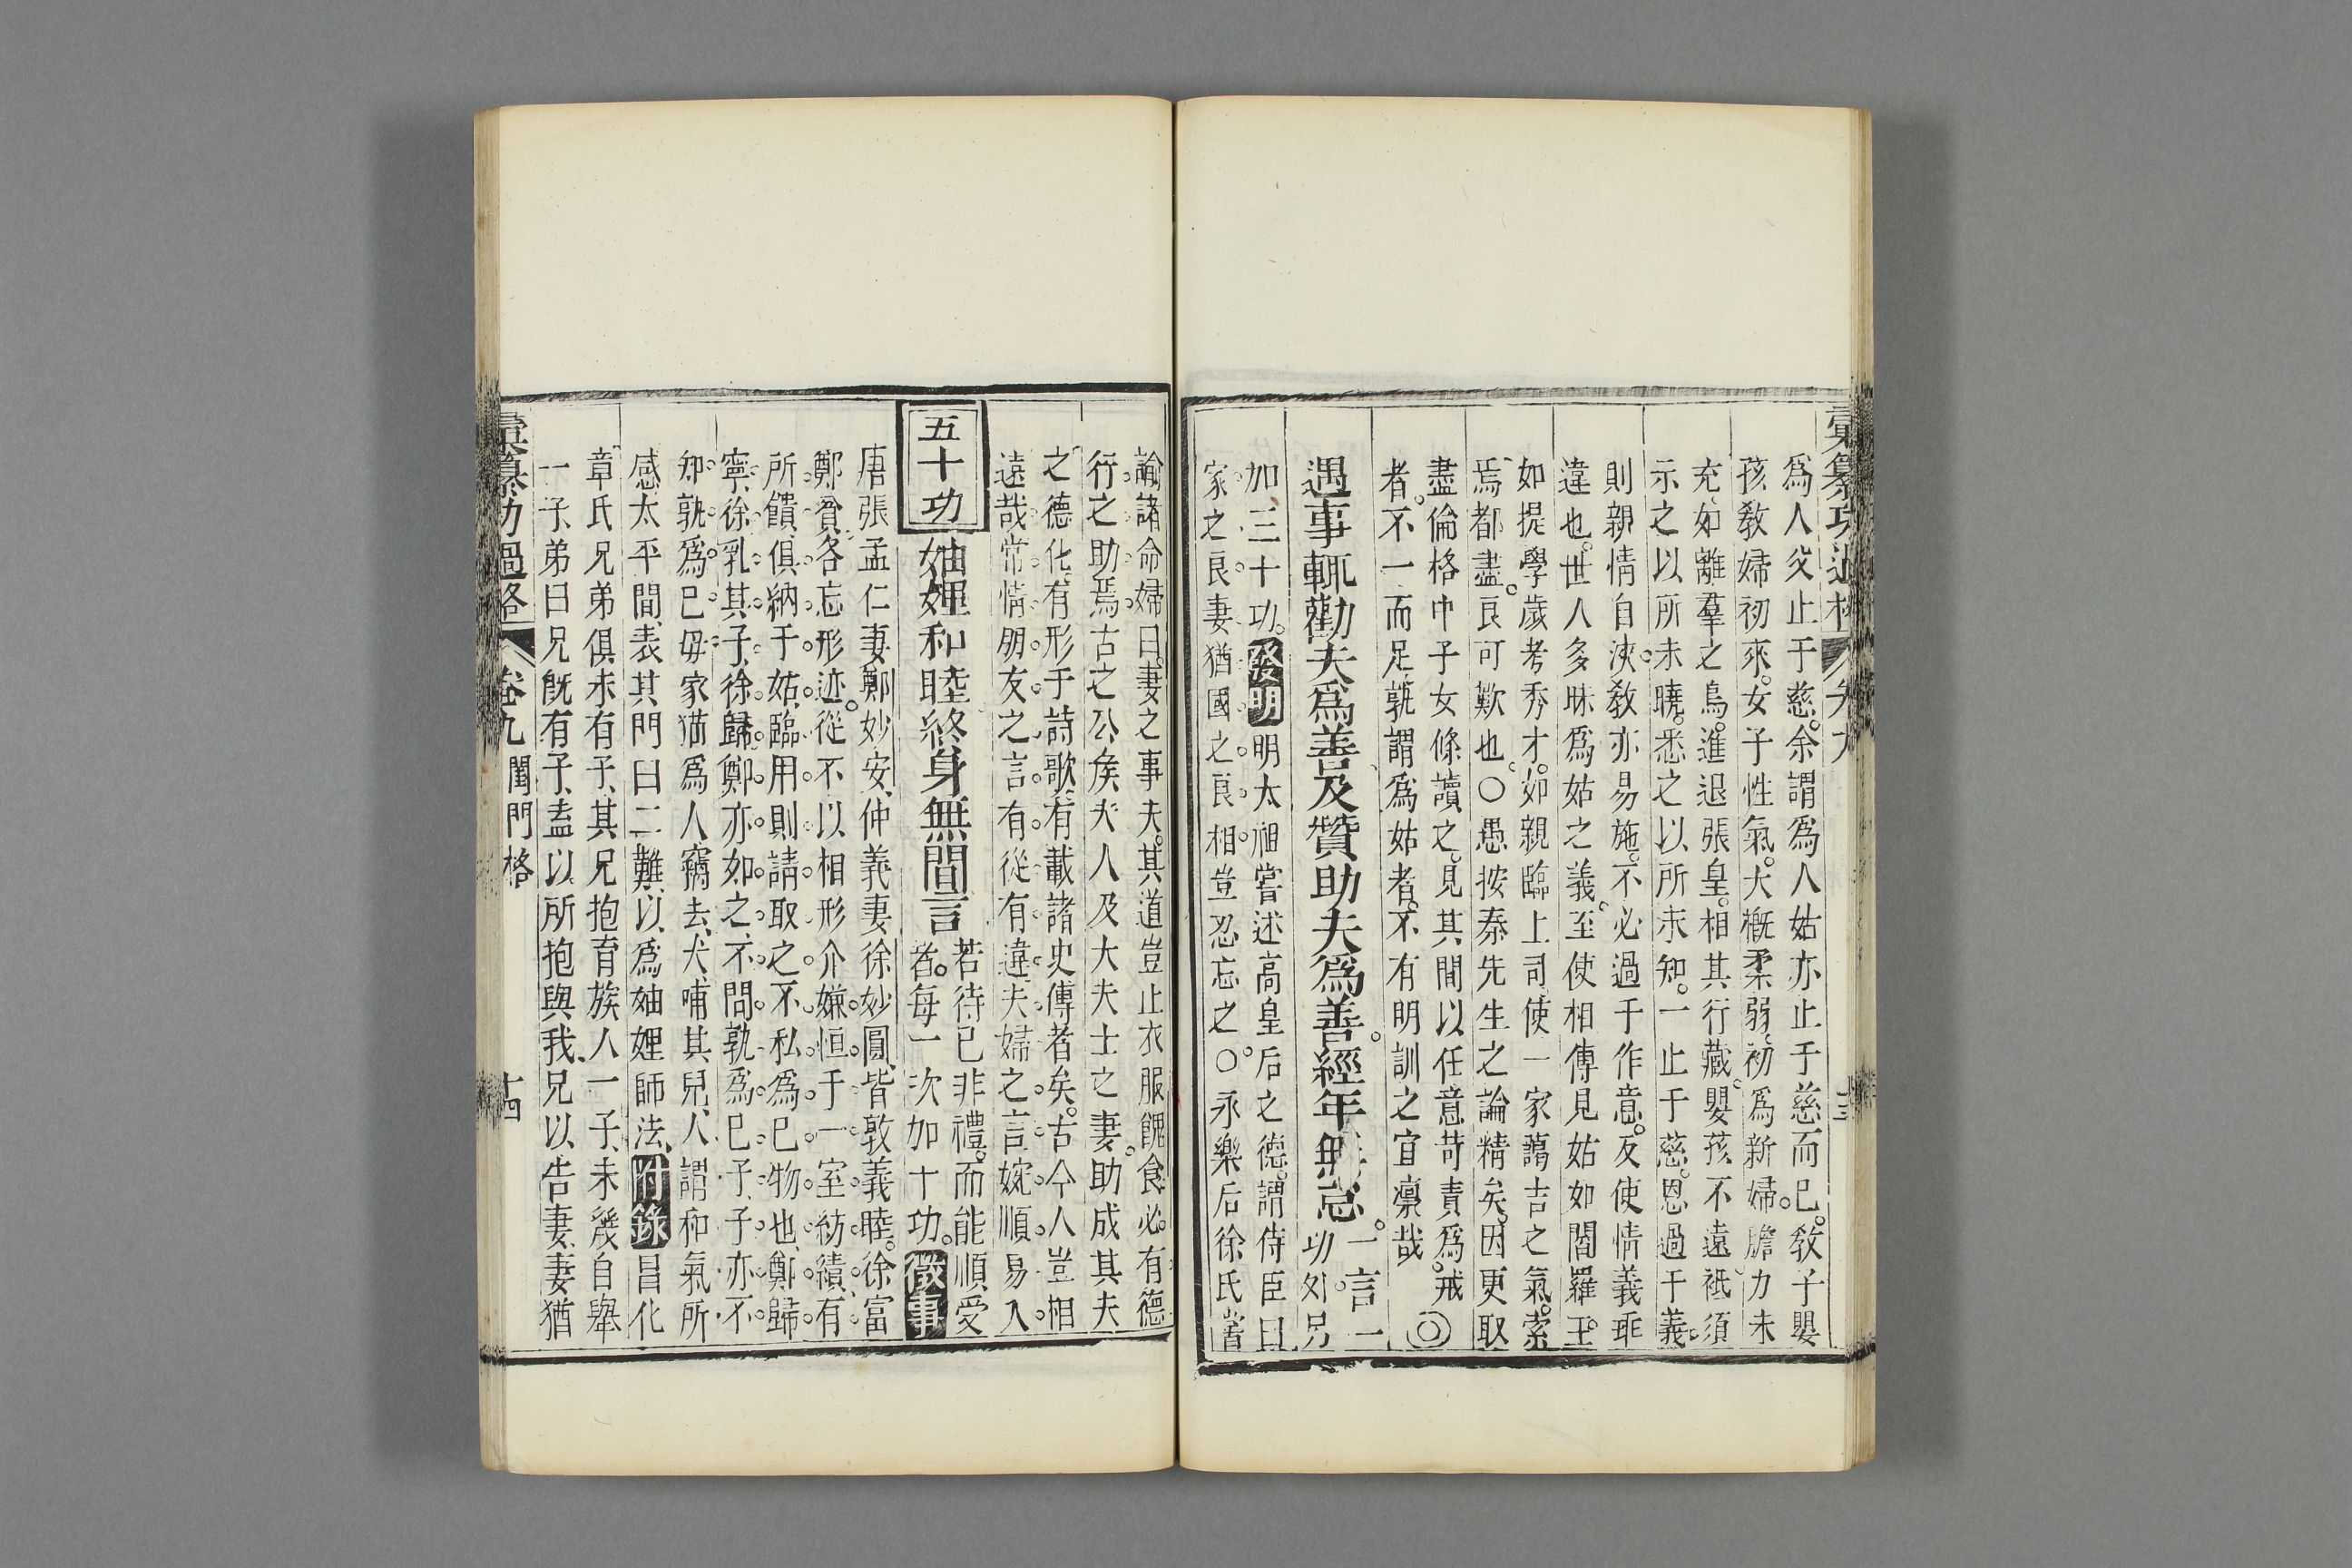 彙纂功過格
爲人父止于慈。余謂爲人姑亦止于慈而已。敎子嬰
孩敎婦初來。女子性氣。大槪柔弱、初爲新婦。膽力未
充、如離羣之鳥。進退張皇。相其行藏。嬰孩不遠、祗須
示之以所未曉。悉之以所未知。一止于慈。恩過于義。
則親情自浹。敎亦易施。不必過于作意。反使情義乖
違也。世人多昧爲姑之義。至使相傳見姑如閻羅王。
如提學歲考秀才。如親臨上司、使一家藹吉之氣。索
焉都盡。良可歎也。○愚按秦先生之論精矣。因更取
盡倫格中子女條讀之。見其間以任意苛責爲戒
者。不一而足、孰謂爲姑者。不有明訓之宜凛哉。◎
遇事輒勸夫爲善及贊助夫爲善。經年無怠。一言一
功。外另
加三十功。發明明太祖嘗述高皇后之德。謂侍臣曰
家之良妻猶國之良相豈忍忘之。○永樂后徐氏嘗
諭諸命婦曰。妻之事夫。其道豈止衣服饋食。必有德
行之助焉。古之公侯夫人及大夫士之妻。助成其夫
之德化、有形于詩歌、有載諸史傳者矣。古今人豈相
遠哉。常情朋友之言。有從有違、夫婦之言。婉順易入
五十功
妯娌和睦終身無間言若待已非禮。而能順受
者。每一次加十功。徵事
唐張孟仁妻鄭妙安、仲義妻徐妙圓、皆敦義睦。徐富
鄭貧、各忘形迹。從不以相形介嫌。恒于一室紡績、有
所饋、俱納于姑、臨用則請取之。不私爲已物也、鄭歸
寧、徐乳其子、徐歸鄭亦如之、不問孰爲已子、子亦不
知孰爲已母家猫爲人竊去、犬哺其兒、人謂和氣所
感、太平間、表其門曰二難、以爲妯娌師法、附錄昌化
章氏兄弟俱未有子、其兄抱育族人一子、未幾自舉
一子、弟曰兄旣有子、盍以所抱與我、兄以告妻、妻猶
彙纂功過格 卷九 閨門格 十四